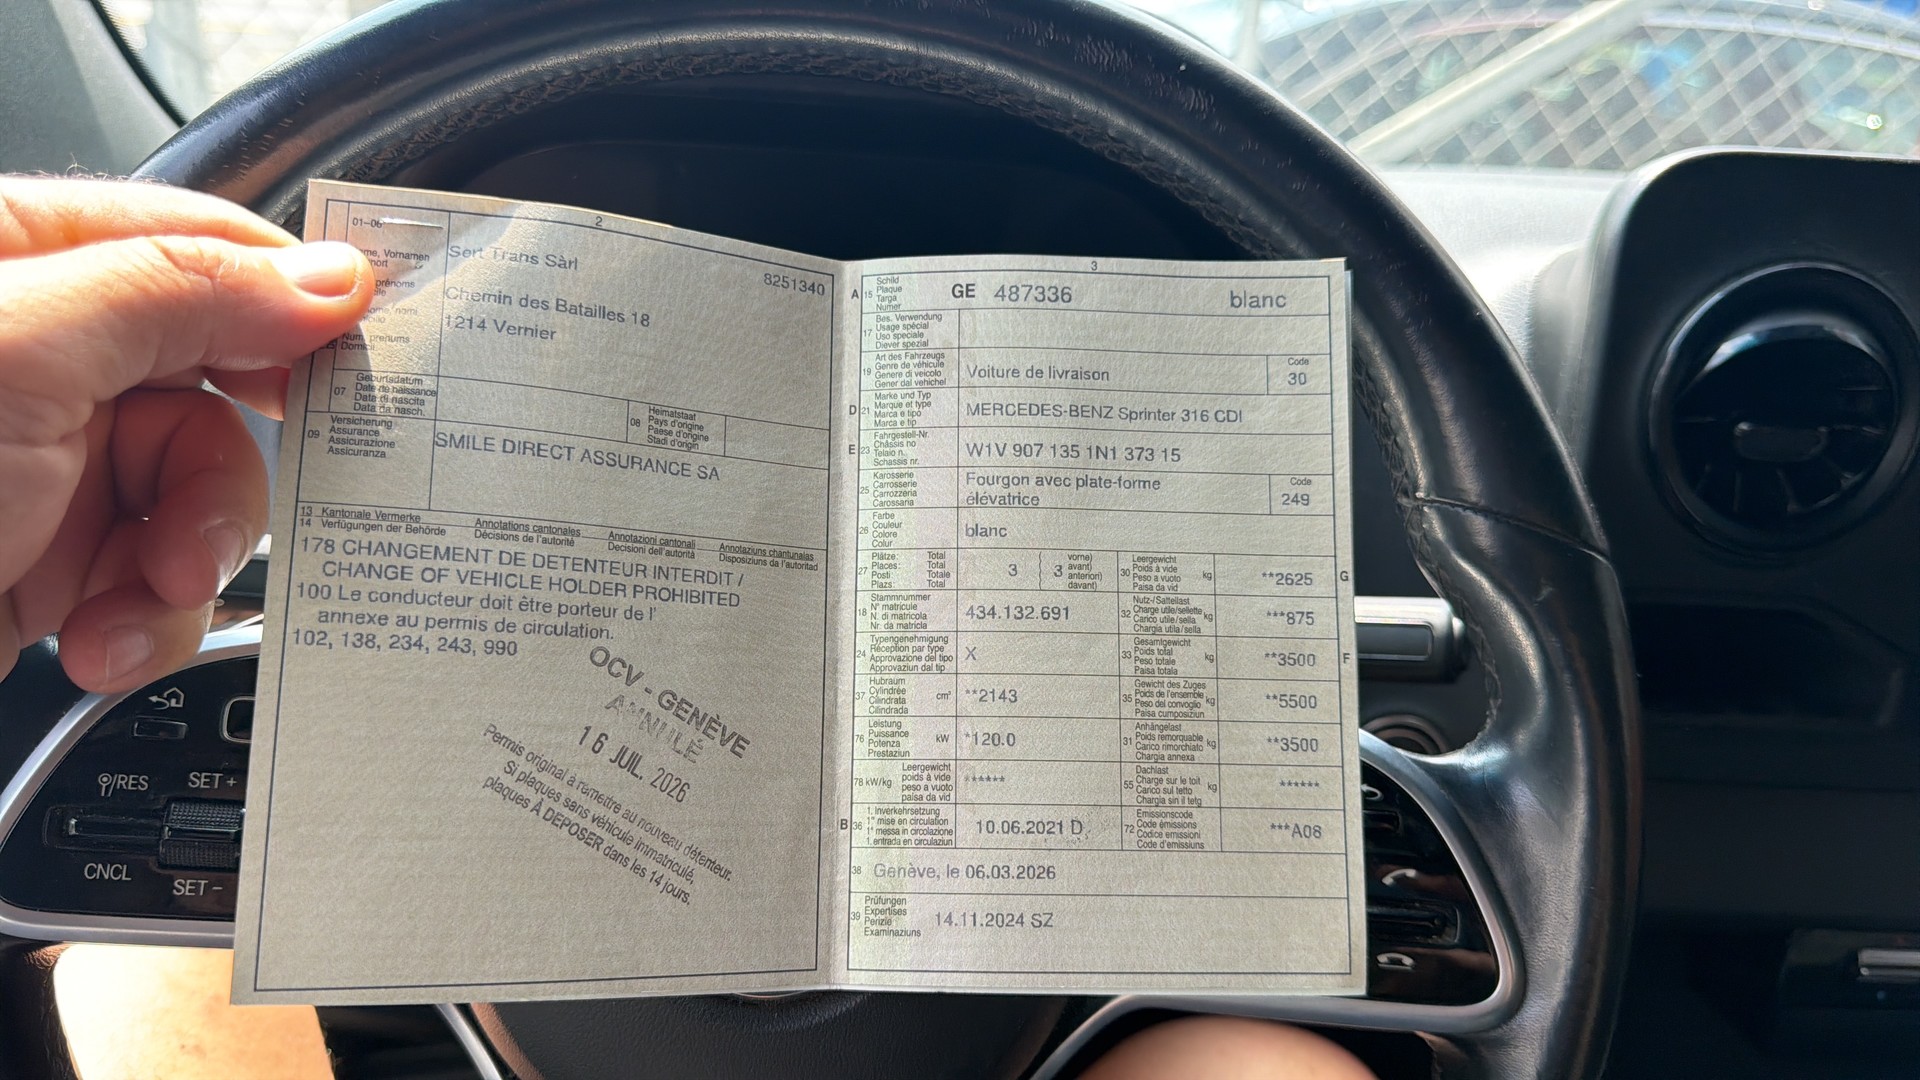 2
01-06
me, Vornamen
prénoms
Num, prenums
Sert Trans Sàrl
8251340
Chemin des Batailles 18
1214 Vernier
07
Geburtsdatum
Date de naissance
Data di nascita
Data da nasch.
08
Heimatstaat
Pays d'origine
Paese d'origine
Stadi d'origin
09
Versicherung
Assurance
Assicurazione
Assicuranza
SMILE DIRECT ASSURANCE SA
13 Kantonale Vermerke
14 Verfügungen der Behörde
Annotations cantonales
Décisions de l'autorité
Annotazioni cantonali
Decisioni dell'autorità
Annotaziuns chantunalas
Disposiziuns da l'autoritad
178 CHANGEMENT DE DETENTEUR INTERDIT /
CHANGE OF VEHICLE HOLDER PROHIBITED
100 Le conducteur doit être porteur de l'
annexe au permis de circulation.
102, 138, 234, 243, 990
OCV - GENÈVE
ANNULÉ
16 JUIL. 2026
Permis original à remettre au nouveau détenteur.
Si plaques sans véhicule immatriculé,
plaques À DEPOSER dans les 14 jours.
3
A 15
Schild
Plaque
Targa
Numer
GE 487336 blanc
17
Bes. Verwendung
Usage spécial
Uso speciale
Diever spezial
19
Art des Fahrzeugs
Genre de véhicule
Genere di veicolo
Gener dal vehichel
Voiture de livraison
Code
30
D 21
Marke und Typ
Marque et type
Marca e tipo
Marca e tip
MERCEDES-BENZ Sprinter 316 CDI
E 23
Fahrgestell-Nr.
Châssis no
Telaio n.
Schassis nr.
W1V 907 135 1N1 373 15
25
Karosserie
Carrosserie
Carrozzeria
Carossaria
Fourgon avec plate-forme
élévatrice
Code
249
26
Farbe
Couleur
Colore
Colur
blanc
27
Plätze: Total
Places: Total
Posti: Totale
Plazs: Total
3
3
vorne)
avant)
anteriori)
davant)
30
Leergewicht
Poids à vide
Peso a vuoto
Paisa da vid
kg
**2625
G
18
Stammnummer
N° matricule
N. di matricola
Nr. da matricla
434.132.691
32
Nutz-/Sattellast
Charge utile/sellette
Carico utile/sella
Chargia utila/sella
kg
***875
24
Typengenehmigung
Réception par type
Approvazione del tipo
Approvaziun dal tip
X
33
Gesamtgewicht
Poids total
Peso totale
Paisa totala
kg
**3500
F
37
Hubraum
Cylindrée
Cilindrata
Cilindrada
cm³
**2143
35
Gewicht des Zuges
Poids de l'ensemble
Peso del convoglio
Paisa cumposiziun
kg
**5500
76
Leistung
Puissance
Potenza
Prestaziun
kW
*120.0
31
Anhängelast
Poids remorquable
Carico rimorchiato
Chargia annexa
kg
**3500
78 kW/kg
Leergewicht
poids à vide
peso a vuoto
paisa da vid
*****
55
Dachlast
Charge sur le toit
Carico sul tetto
Chargia sin il tetg
kg
******
B 36
1. Inverkehrsetzung
1re mise en circulation
1a messa in circolazione
1. entrada en circulaziun
10.06.2021 D
72
Emissionscode
Code émissions
Codice emissioni
Code d'emissiuns
***A08
38
Genève, le 06.03.2026
39
Prüfungen
Expertises
Perizie
Examinaziuns
14.11.2024 SZ
/RES
SET +
CNCL
SET -